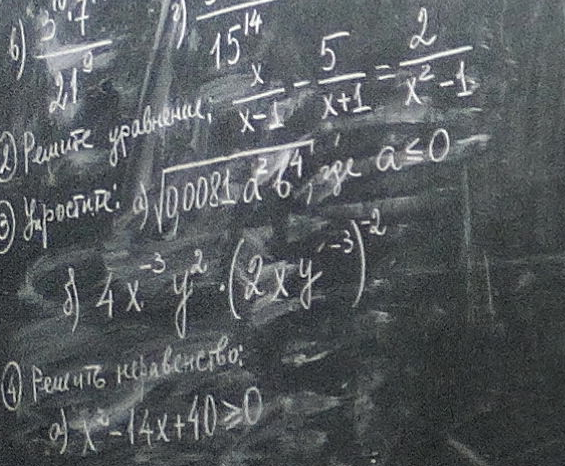 в) 7 / 21⁹ 2) 15¹⁴
② Решите уравнение: x/(x-1) - 5/(x+1) = 2/(x²-1)
③ Упростить: а) √(0,0081 a² b⁴), где a ≤ 0
б) 4x⁻³ y² · (2xy⁻³)⁻²
④ Решить неравенство:
а) x² - 14x + 40 ≥ 0